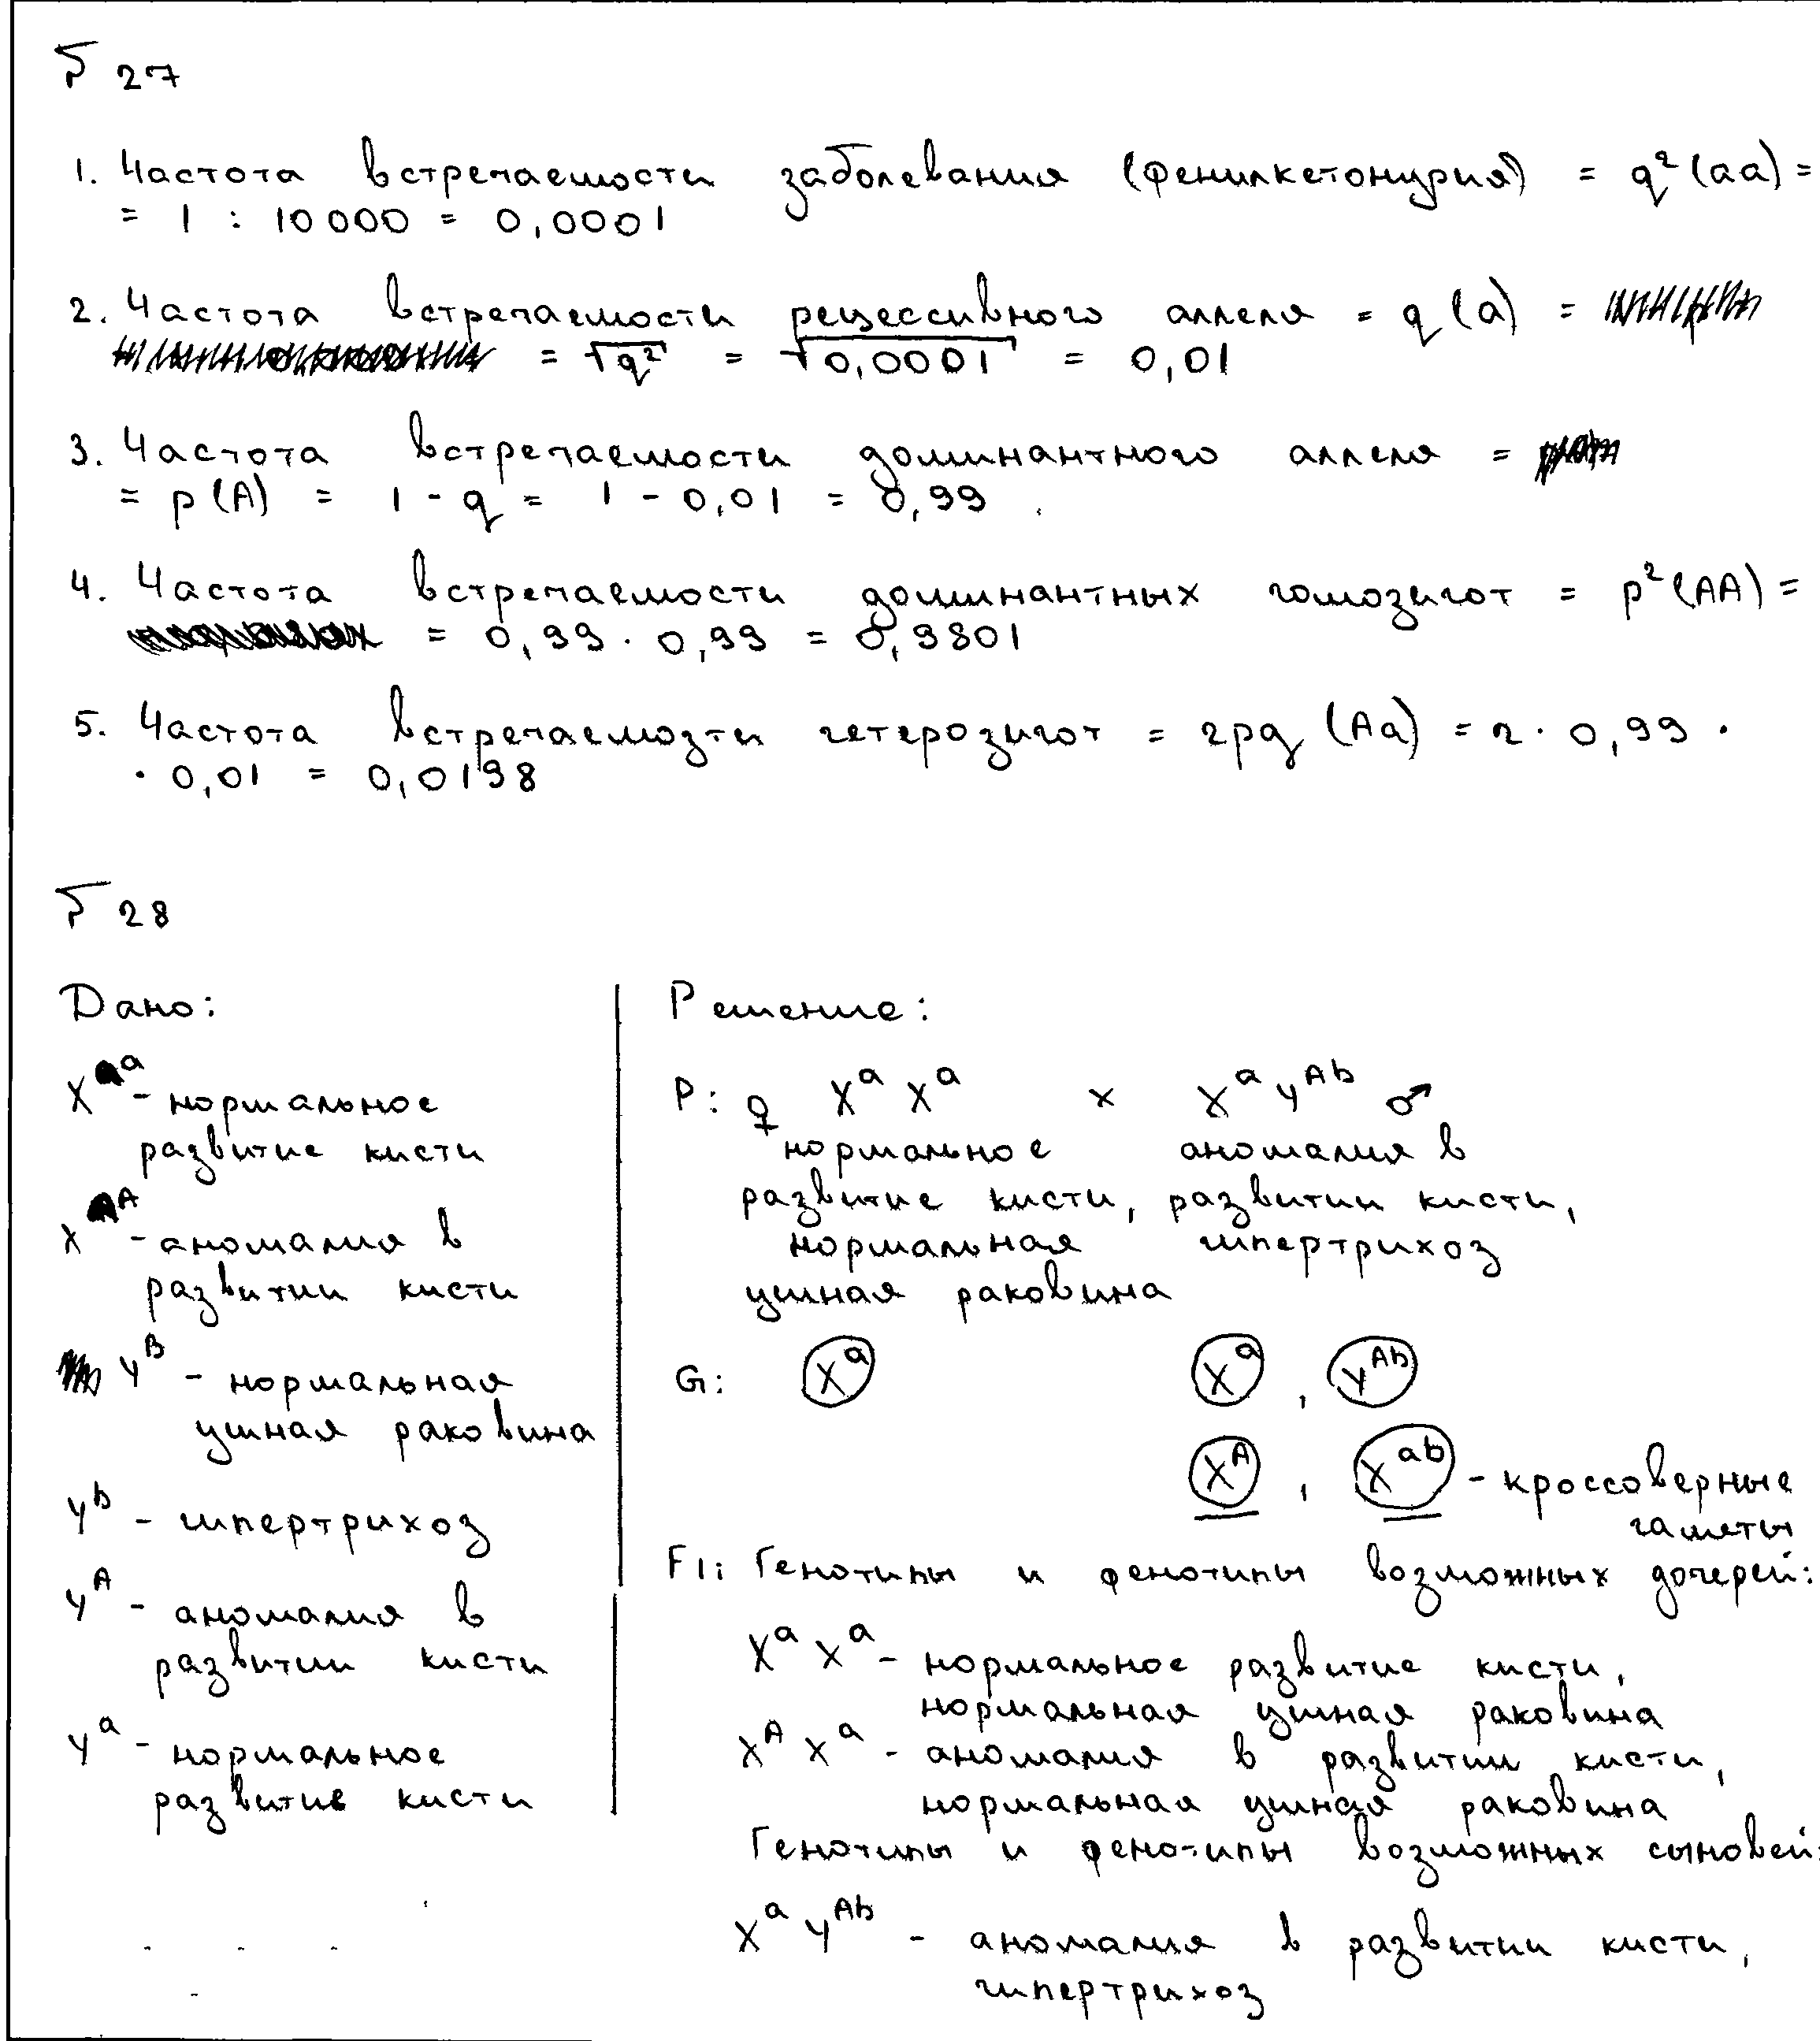 № 27
1. Частота встречаемости заболевания (фенилкетонурия) = q²(aa) =
= 1 : 10 000 = 0,0001
2. Частота встречаемости рецессивного аллеля = q(a) =
= √q² = √0,0001 = 0,01
3. Частота встречаемости доминантного аллеля =
= p(A) = 1 - q = 1 - 0,01 = 0,99
4. Частота встречаемости доминантных гомозигот = p²(AA) =
= 0,99 · 0,99 = 0,9801
5. Частота встречаемозти гетерозигот = 2pq (Aa) = 2 · 0,99 ·
· 0,01 = 0,0198
№ 28
Дано:
Xᵃ - нормальное
развитие кисти
Xᴬ - аномалия в
развитии кисти
Yᴮ - нормальная
ушная раковина
Yᵇ - гипертрихоз
Yᴬ - аномалия в
развитии кисти
Yᵃ - нормальное
развитие кисти
Решение:
P: ♀ Xᵃ Xᵃ × Xᵃ Yᴬᵇ ♂
нормальное аномалия в
развитие кисти, развитии кисти,
нормальная гипертрихоз
ушная раковина
G: Xᵃ Xᵃ , Yᴬᵇ
Xᴬ , Xᵃᵇ - кроссоверные
гаметы
F1: Генотипы и фенотипы возможных дочерей:
Xᵃ Xᵃ - нормальное развитие кисти,
нормальная ушная раковина
Xᴬ Xᵃ - аномалия в развитии кисти,
нормальная ушная раковина
Генотипы и фенотипы возможных сыновей:
Xᵃ Yᴬᵇ - аномалия в развитии кисти,
гипертрихоз